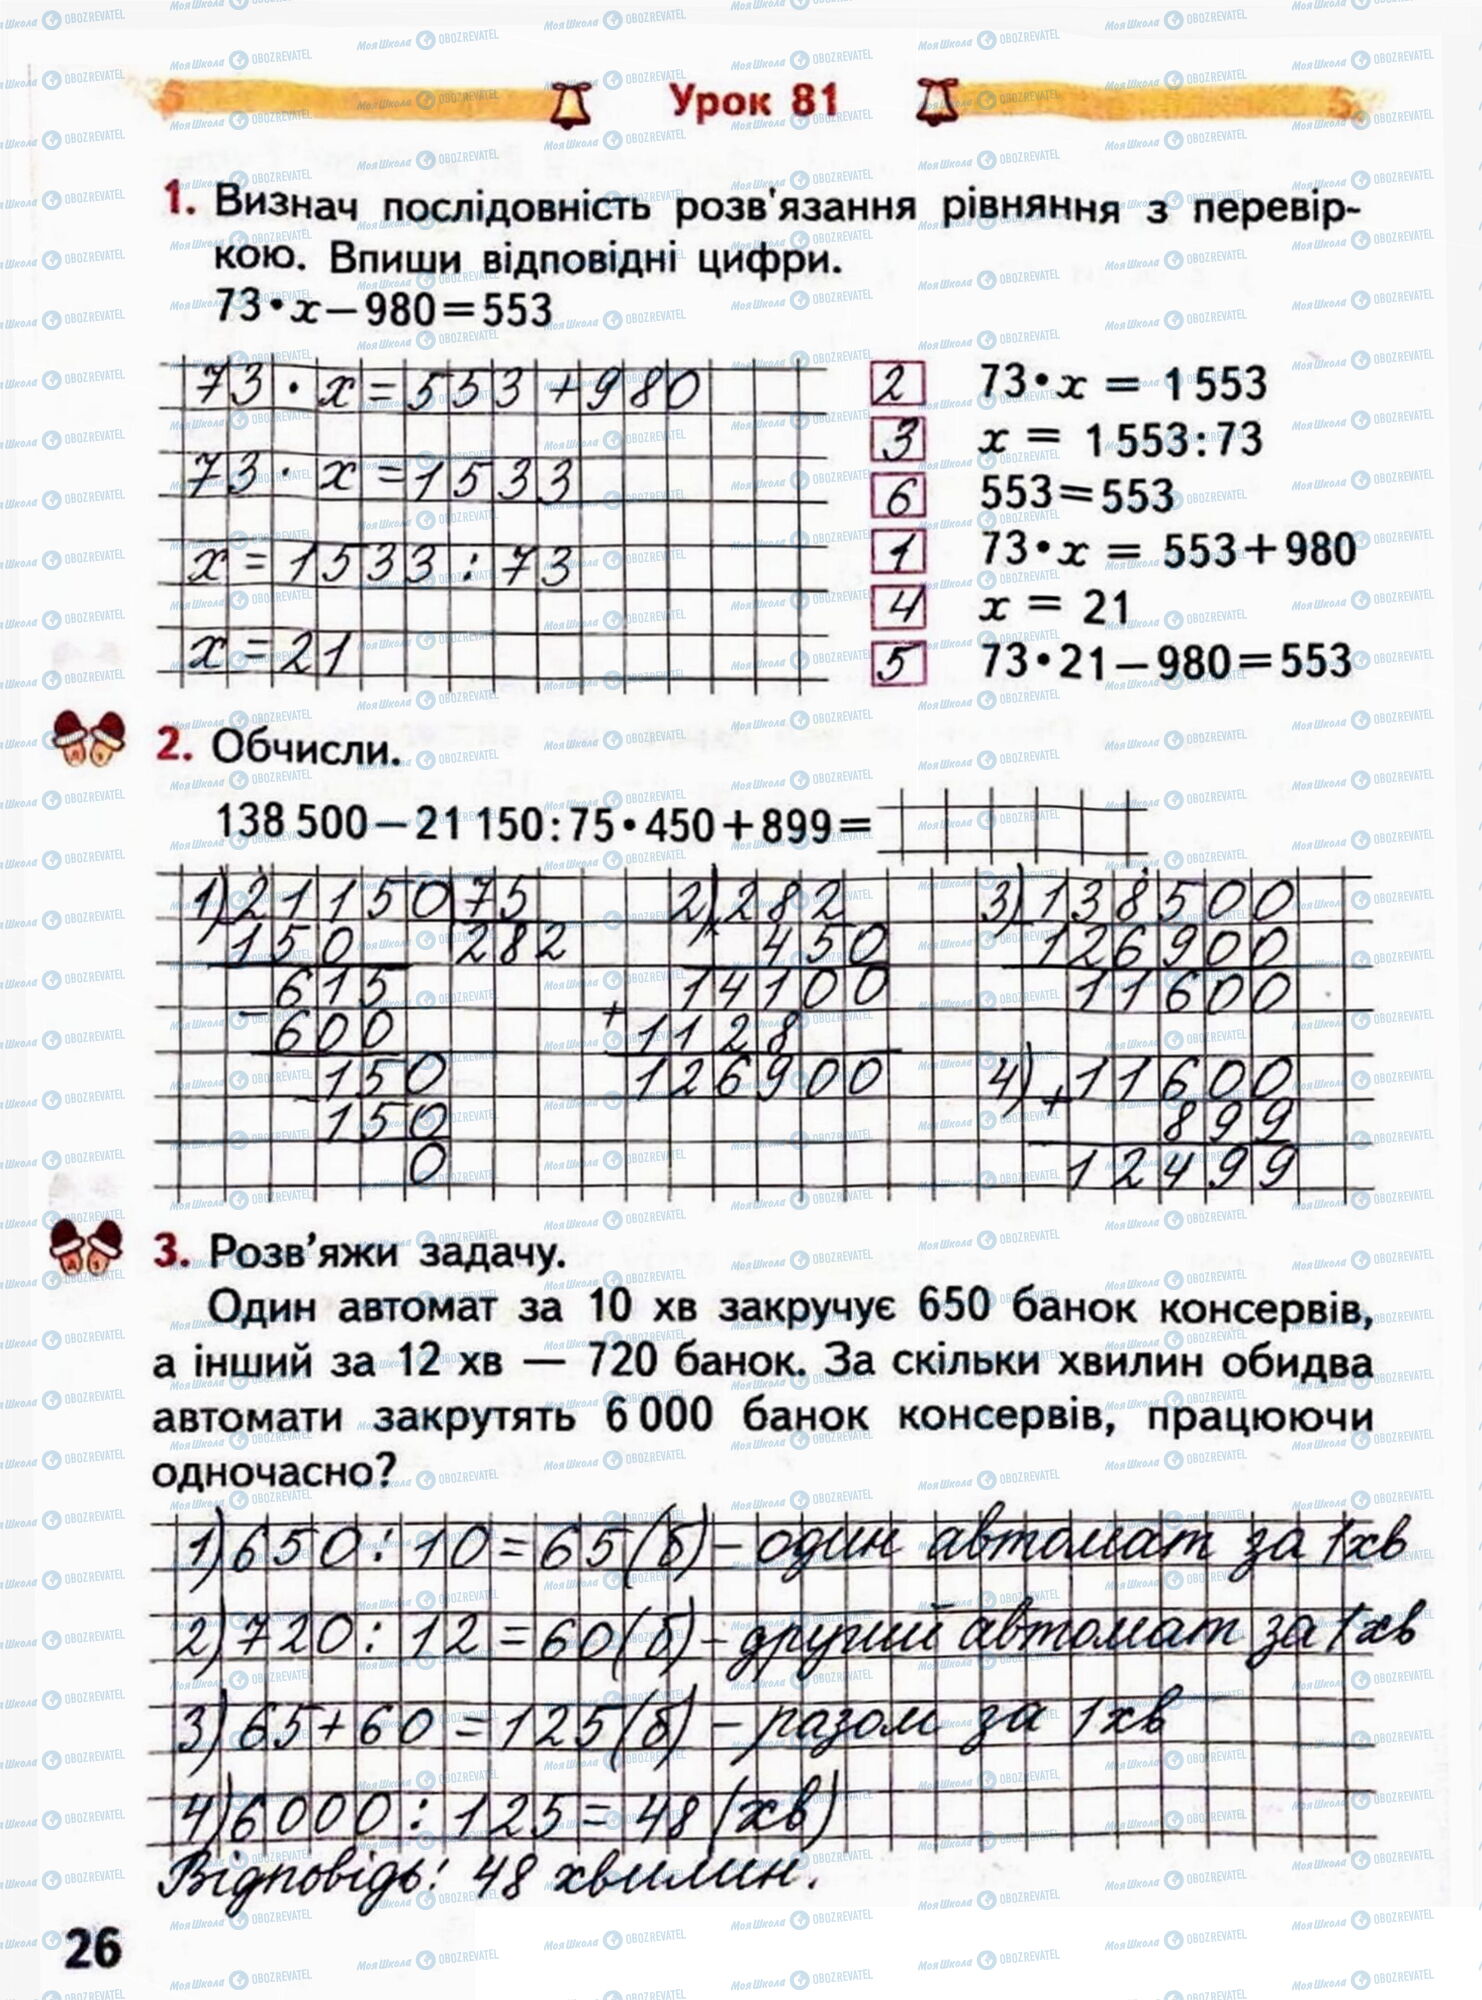 Урок 81
1. Визнач послідовність розв'язання рівняння з перевір-
кою. Впиши відповідні цифри.
73•x−980=553
73·x=553+980
73·x=1533
x=1533:73
x=21
2 73•x = 1553
3 x = 1553:73
6 553=553
1 73•x = 553+980
4 x = 21
5 73•21−980=553
2. Обчисли.
138 500−21 150:75•450+899=
1) 21150 75
150 282
615
600
150
150
0
2) 282
× 450
14100
+ 1128
126900
3) 138500
126900
11600
4) 11600
+ 899
12499
3. Розв’яжи задачу.
Один автомат за 10 хв закручує 650 банок консервів,
а інший за 12 хв — 720 банок. За скільки хвилин обидва
автомати закрутять 6 000 банок консервів, працюючи
одночасно?
1) 650:10=65(б)–один автомат за 1хв
2) 720:12=60(б)–другий автомат за 1хв
3) 65+60=125(б)–разом за 1хв
4) 6000:125=48(хв)
Відповідь: 48 хвилин.
26
МояШкола OBOZREVATEL